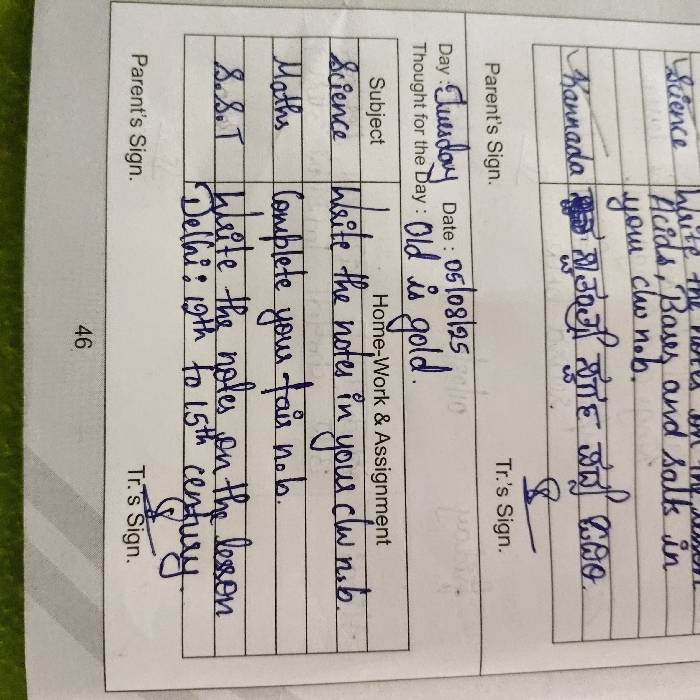 Science Write the notes on the
Acids, Bases and salts in
your c/w n.b.
Kannada
Parent's Sign. Tr.'s Sign.
Day : Tuesday Date : 05/08/25
Thought for the Day : Old is gold.
Subject Home-Work & Assignment
Science Write the notes in your c/w n.b.
Maths Complete your fair n.b.
S.S.T Write the notes on the lesson
Delhi : 12th to 15th century.
Parent's Sign. Tr.'s Sign.
46